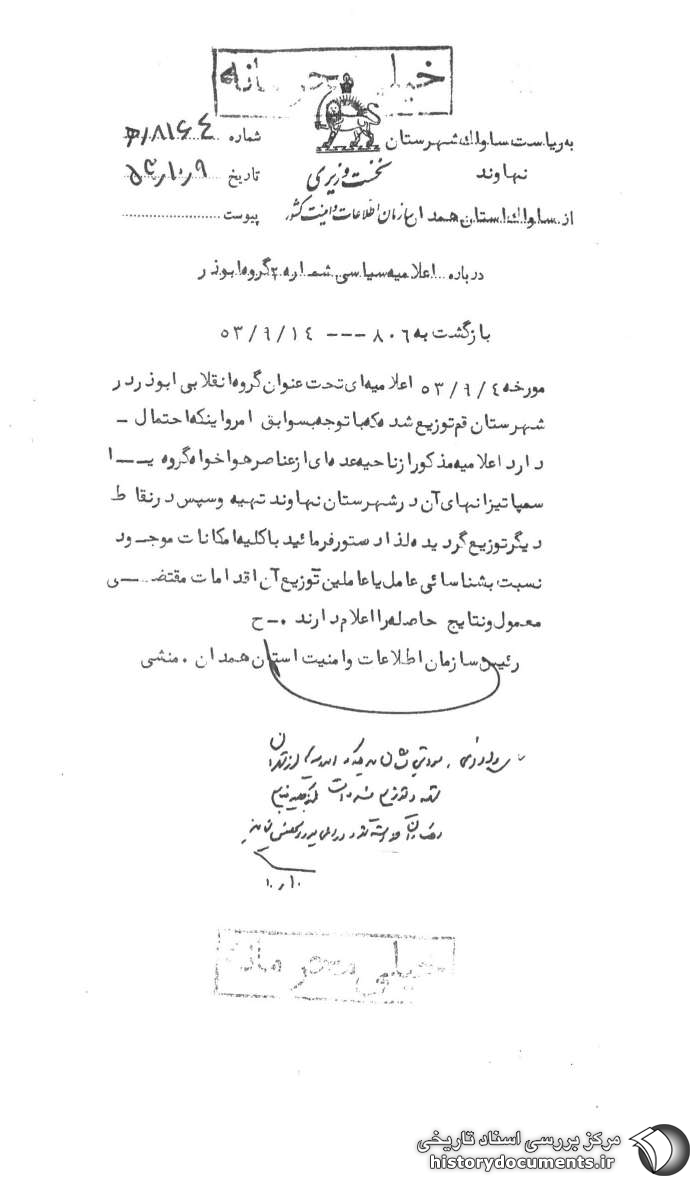 خیلی محرمانه
به ریاست ساواک شهرستان
نهاوند
از ساواک استان همدان
نخست وزیری
سازمان اطلاعات و امنیت کشور
شماره
تاریخ ۵۳/۱۰/۹
پیوست
درباره اعلامیه سیاسی شماره ۲ گروه ابوذر
بازگشت به ۸۰۶ --- ۵۳/۹/۱۴
مورخه ۵۳/۹/۴ اعلامیه‌ای تحت عنوان گروه انقلابی ابوذر در
شهرستان قم توزیع شده که با توجه بسوابق امر و اینکه احتمال -
دارد اعلامیه مذکور از ناحیه عده‌ای از عناصر هواخواه گروه یا
سمپاتیزانهای آن در شهرستان نهاوند تهیه و سپس در نقاط
دیگر توزیع گردیده لذا دستور فرمائید با کلیه امکانات موجود
نسبت بشناسائی عامل یا عاملین توزیع آن اقدامات مقتضی
معمول و نتایج حاصله را اعلام دارند . ح
رئیس سازمان اطلاعات و امنیت استان همدان . منشی
۱۰/۱۰
خیلی محرمانه
مرکز بررسی اسناد تاریخی
historydocuments.ir